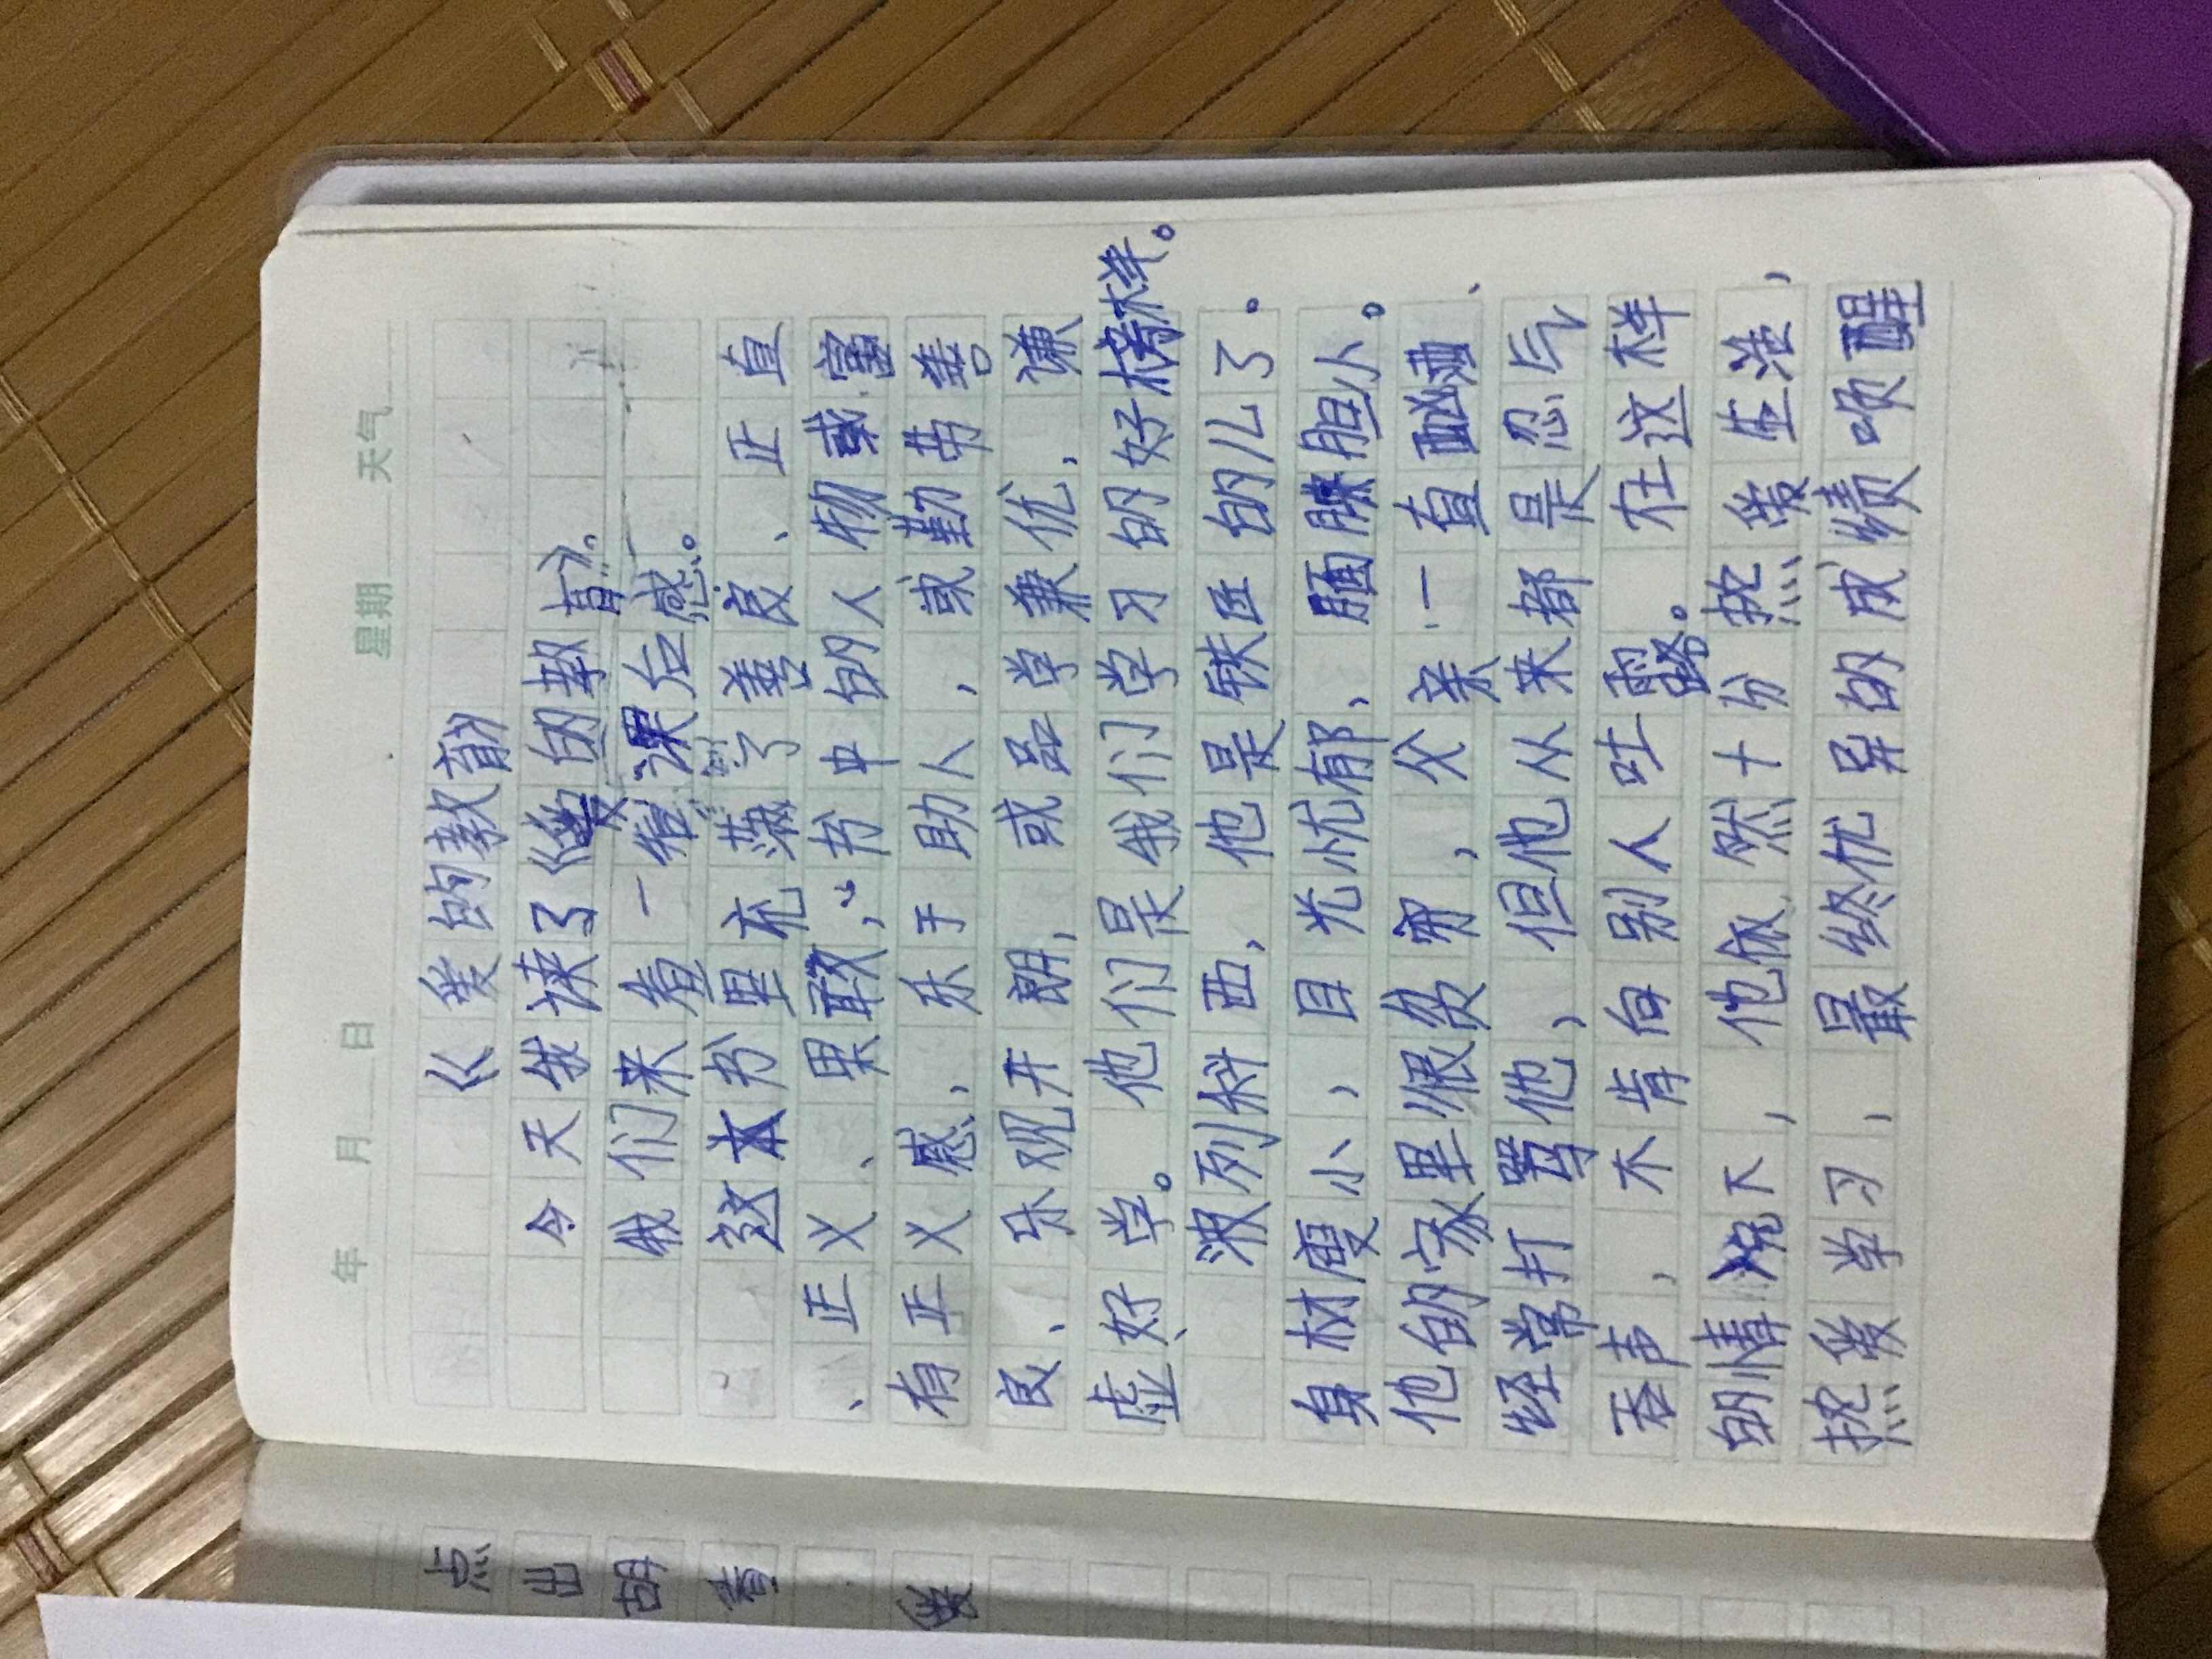 年 月 日 星期 天气
《爱的教育》
今天我读了《爱的教育》。
我们来看一看课后感。
这本书里充满了善良、正直
、正义、果敢,书中的人物或富
有正义感,乐于助人,或勤劳善
良、乐观开朗,或品学兼优,谦
虚好学。他们是我们学习的好榜样。
波列科西,他是铁匠的儿子。
身材瘦小,目光忧郁,腼腆胆小。
他的家里很贫穷,父亲一直酗酒、
经常打骂他,但他从来都是忍气
吞声,不肯向别人吐露。在这样
的情况下,他依然十分热爱生活,
热爱学习,最终优异的成绩唤醒
点
出
胡